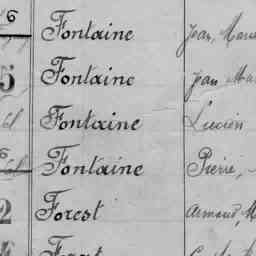 6 Fontaine Jean, Marie
5 Fontaine Jean Ma
Fontaine Lucien
Fontaine Pierre,
2 Forest Armand, M
Forest